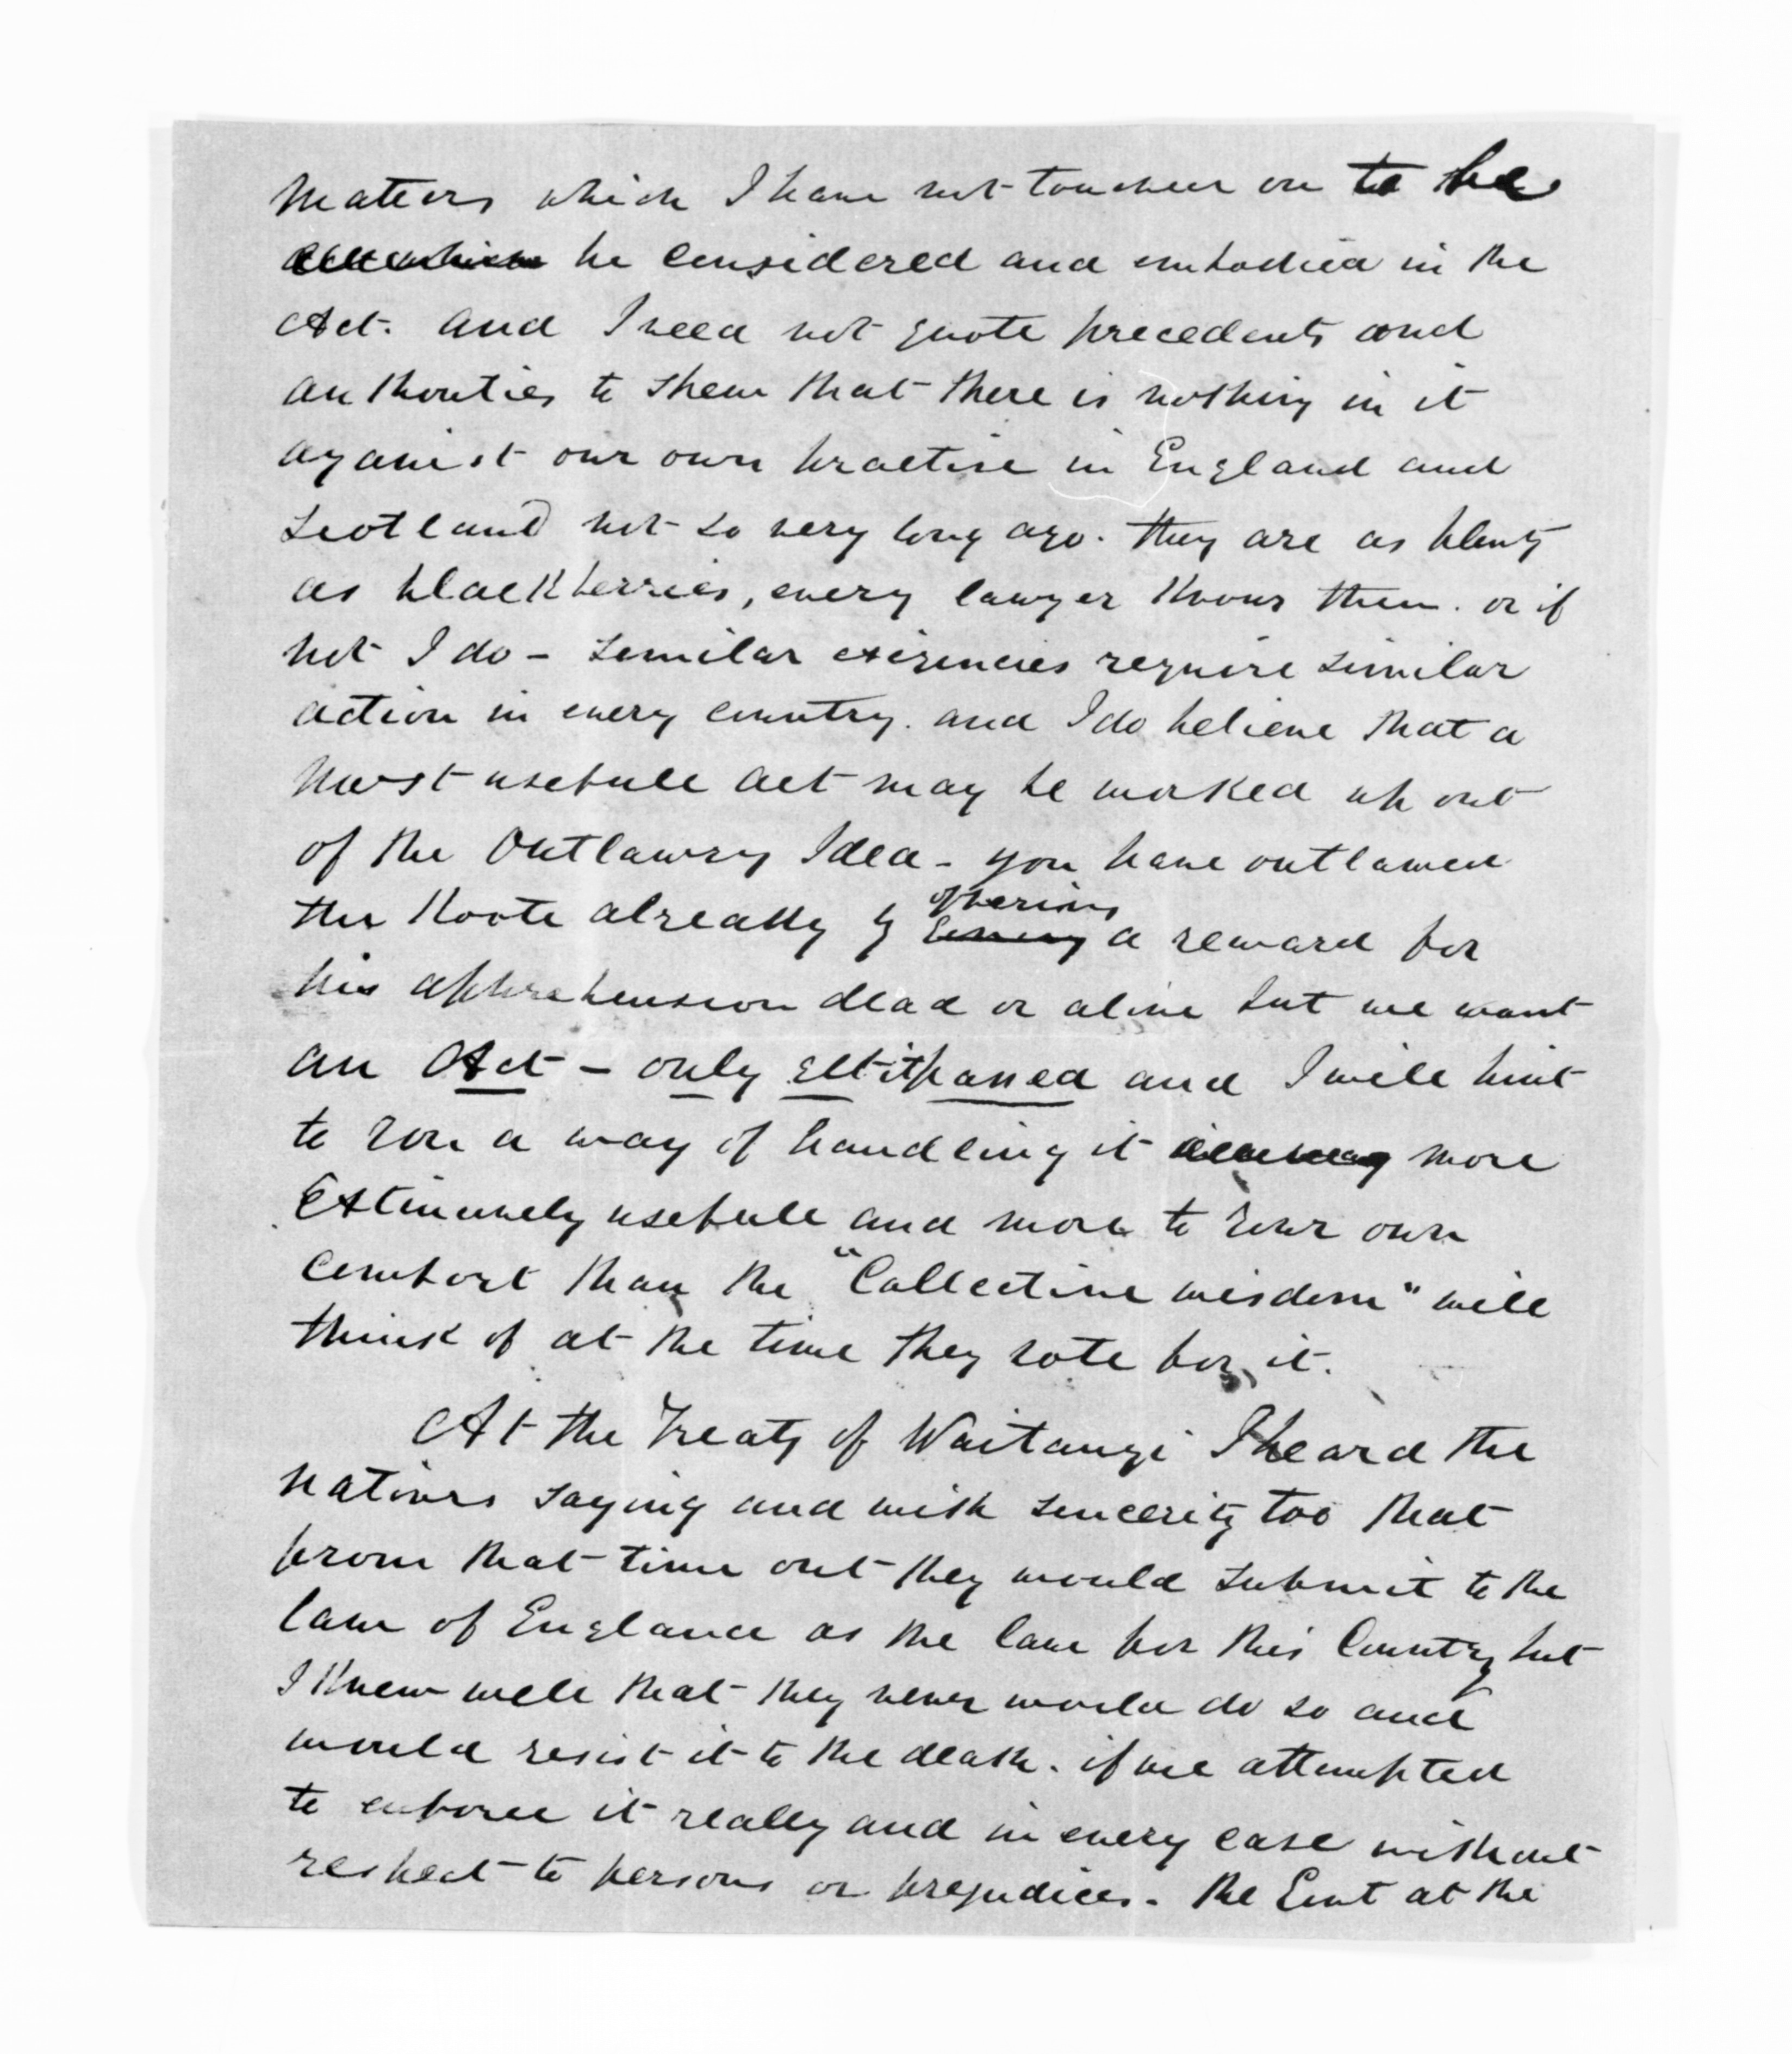 Matters which I have not touched on to be
be considered and embodied in the
Act. and I need not quote precedents and
authorities to shew that there is nothing in it
against our own practise in England and
Scotland not so very long ago. they are as plenty
as blackberries, every lawyer knows them. or if
not I do - similar exigencies require similar
action in every country. and I do believe that a
most usefull act may be worked up out
of the Outlawry Idea - you have outlawed
the Koote already by offering a reward for
his apprehension dead or alive but we want
an Act - only get it passed and I will hint
to you a way of handling it more
extensively usefull and more to your own
comfort than the "Collective wisdom" will
think of at the time they vote for it.
At the Treaty of Waitangi I heard the
natives saying and with sincerity too that
from that time out they would submit to the
law of England as the law for this Country but
I knew well that they never would do so and
would resist it to the death. if we attempted
to enforce it really and in every case without
respect to persons or prejudices. the Govt at the